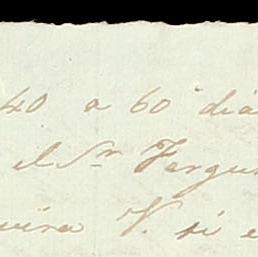 40 a 60 dia
el Sr Fergu
uira V. si e